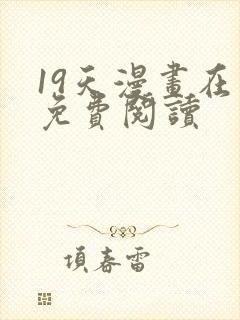 19天漫畫在
免費閱讀
項春雷